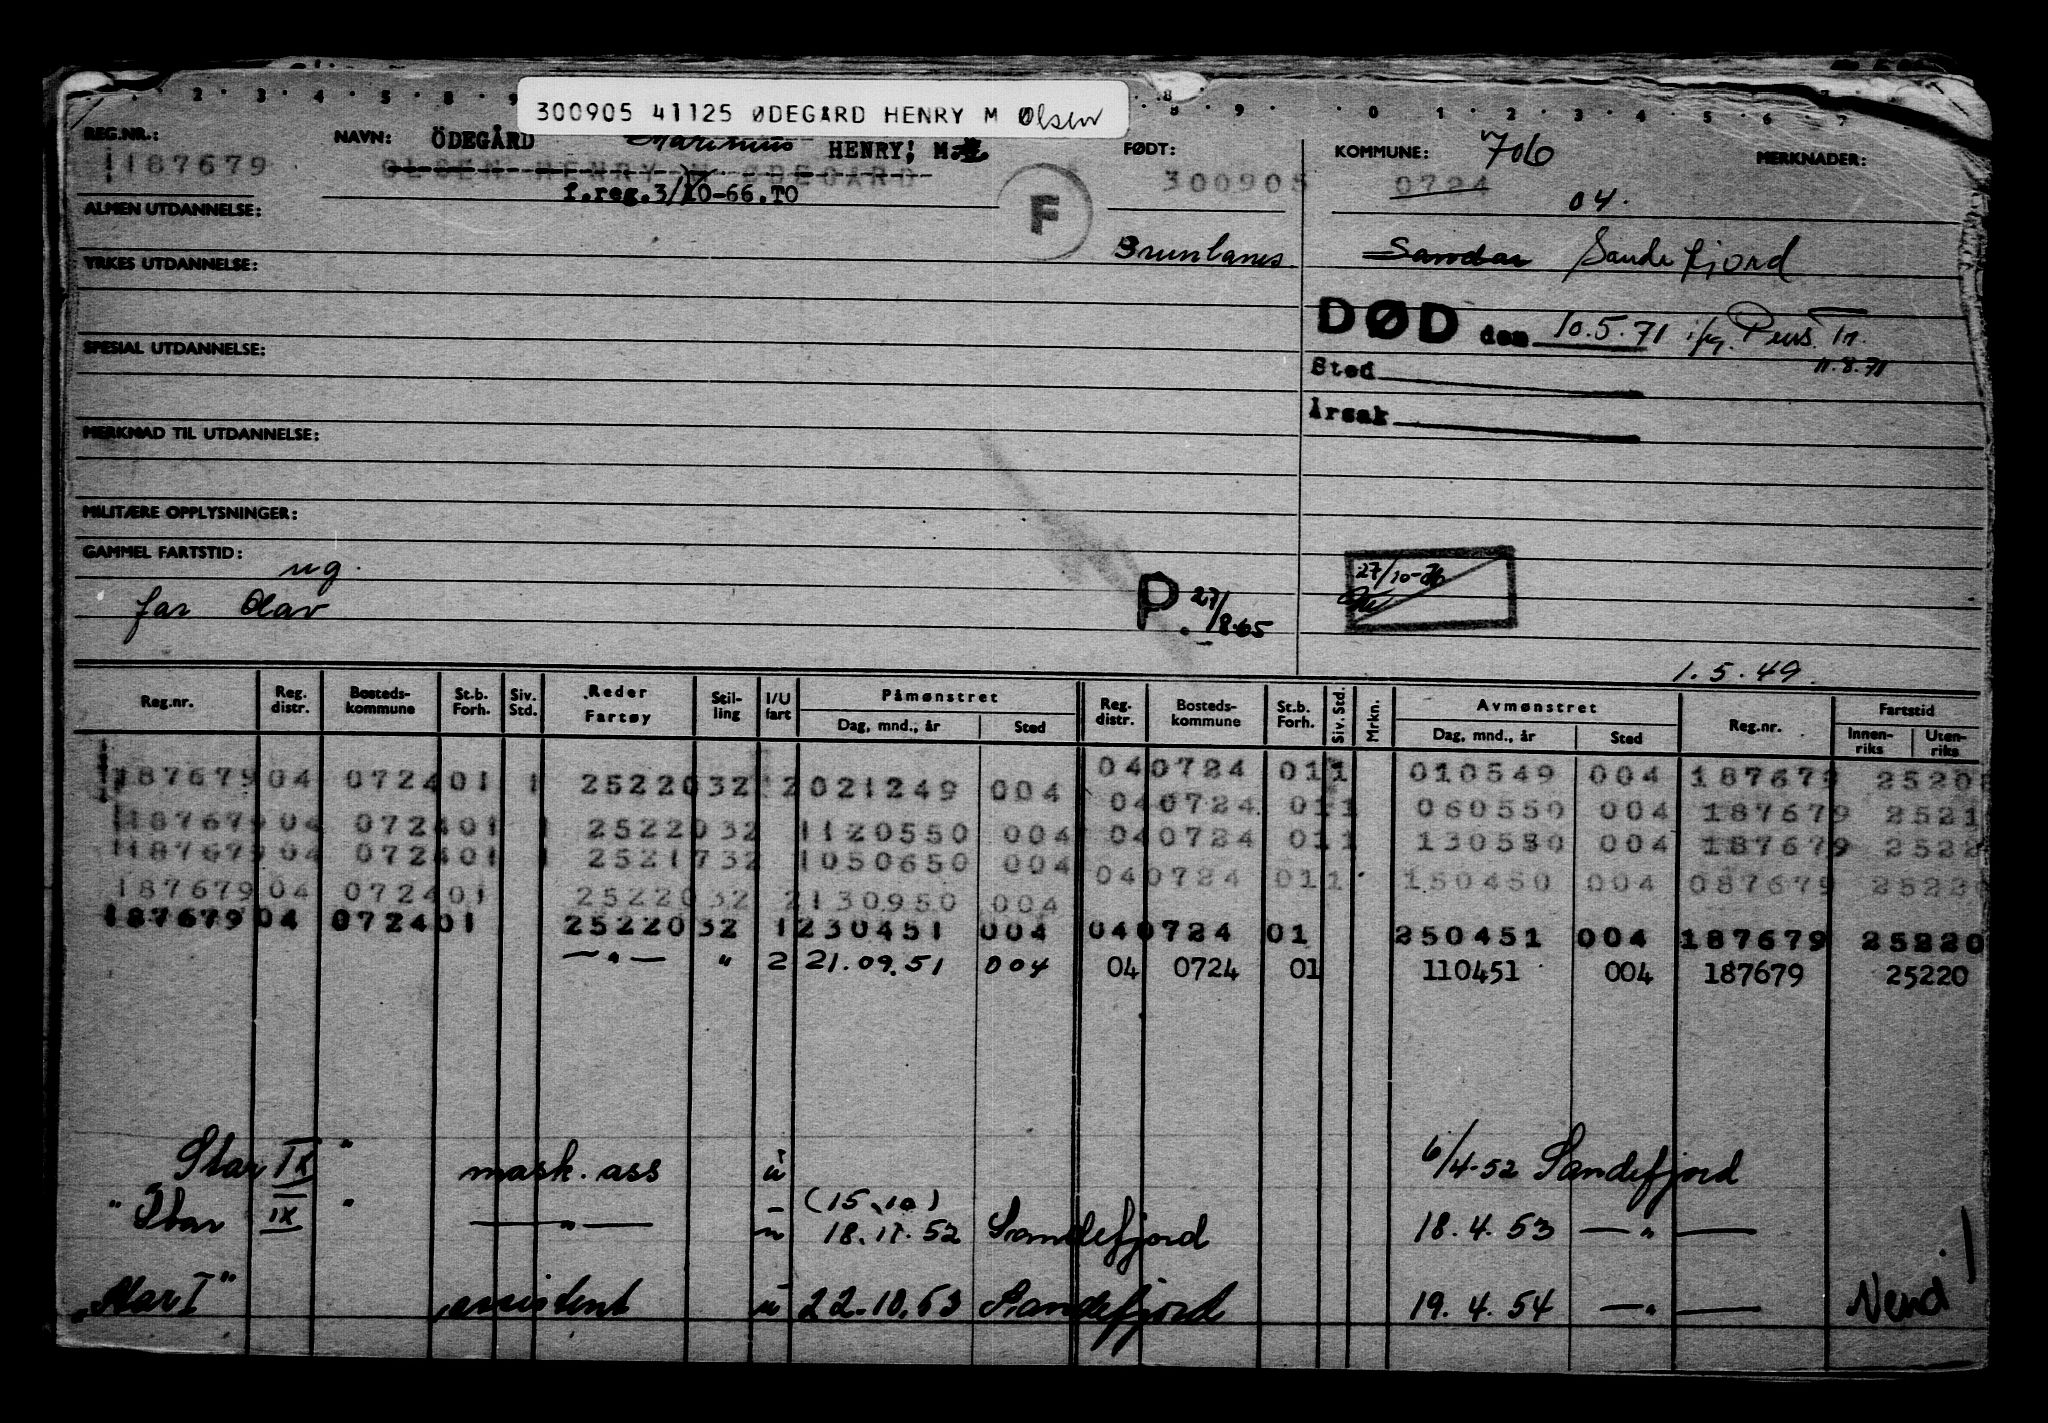 300905 41125 ØDEGÅRD HENRY M Olsen
REG.NR.: NAVN: ÖDEGÅRD Marinius HENRY, M. FØDT: KOMMUNE: 706 MERKNADER:
187679 OLSEN HENRY M ØDEGÅRD 300905 0724
f.reg.3/10-66.TO F 04.
ALMEN UTDANNELSE:
Brunlanes Sandar Sandefjord
YRKES UTDANNELSE:
DØD den 10.5.71 ifg. Pens. Tr.
11.8.71
SPESIAL UTDANNELSE:
Sted
Årsak
MERKNAD TIL UTDANNELSE:
MILITÆRE OPPLYSNINGER:
GAMMEL FARTSTID:
ug.
far Olav
P. 27/8-65
27/10-
1.5.49.
Reg.nr. Reg. distr. Bosteds-kommune St.b. Forh. Siv. Std. Reder Fartøy Stil-ling I/U fart Påmønstret Dag, mnd., år Sted Reg. distr. Bosteds-kommune St.b. Forh. Siv. Std. Mrkn. Avmønstret Dag, mnd., år Sted Reg.nr. Fartstid Innen-riks Uten-riks
040724 011 010549 004 187679 2520
187679 04 0724 01 1 25220 32 2 021249 004
040724 011 060550 004 187679 2521
187679 04 0724 01 1 25220 32 1 120550 004
040724 011 130550 004 187679 2522
187679 04 0724 01 1 25217 32 1 050650 004
040724 011 150450 004 087679 2522
187679 04 0724 01 25220 32 2 130950 004
187679 04 0724 01 25220 32 1 230451 004 04 0724 01 250451 004 187679 25220
— " — " 2 21.09.51 004 04 0724 01 110451 004 187679 25220
Star IX " mask. ass u 6/4-52 Sandefjord
(15.10)
" Star IX " — " — u 18.11.52 Sandefjord 18.4.53 — " —
"Star I" assistent u 22.10.53 Sandefjord 19.4.54 — " — Vend!